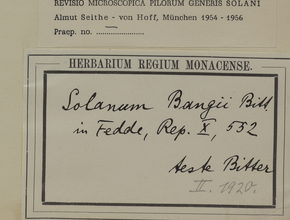 REVISIO MICROSCOPICA PILORUM GENERIS SOLANI
Almut Seithe - von Hoff, München 1954 - 1956
Praep. no. ........................
HERBARIUM REGIUM MONACENSE.
Solanum Bangii Bitt.
in Fedde, Rep. X, 552
teste Bitter
II. 1920.